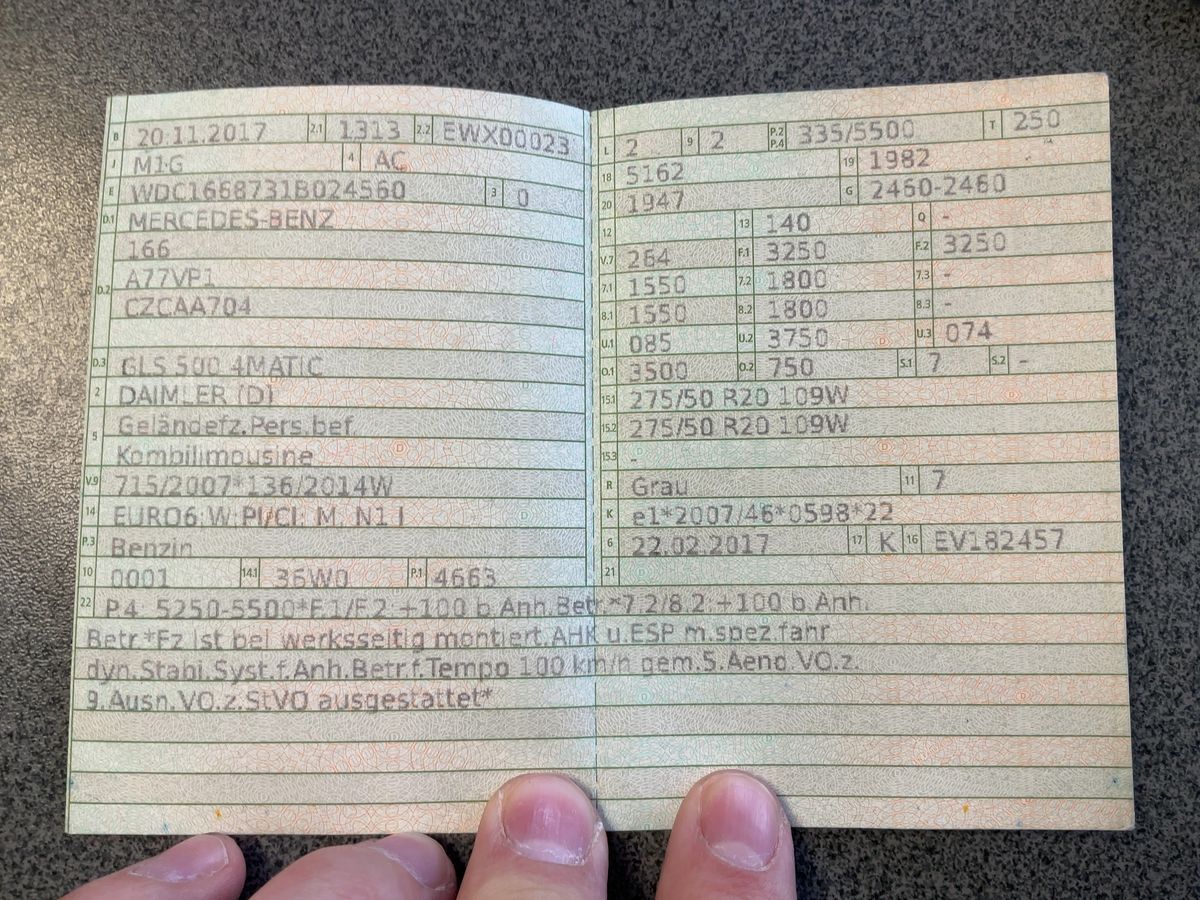 B 20.11.2017 2.1 1313 2.2 EWX00023
J M1G 4 AC
E WDC1668731B024560 3 0
D.1 MERCEDES-BENZ
166
D.2 A77VP1
CZCAA704
D.3 GLS 500 4MATIC
2 DAIMLER (D)
5 Geländefz.Pers.bef.
Kombilimousine
V.9 715/2007*136/2014W
14 EURO6 W PI/CI: M, N1 I
P.3 Benzin
10 0001 14.1 36W0 P.1 4663
L 2 9 2 P.2 P.4 335/5500 T 250
18 5162 19 1982
20 1947 G 2460-2460
12 13 140 Q -
V.7 264 F.1 3250 F.2 3250
7.1 1550 7.2 1800 7.3 -
8.1 1550 8.2 1800 8.3 -
U.1 085 U.2 3750 U.3 074
O.1 3500 O.2 750 S.1 7 S.2 -
15.1 275/50 R20 109W
15.2 275/50 R20 109W
15.3 -
R Grau 11 7
K e1*2007/46*0598*22
6 22.02.2017 17 K 16 EV182457
21
22 P.4: 5250-5500*F.1/F.2:+100 b.Anh.Betr.*7.2/8.2:+100 b.Anh.
Betr.*Fz ist bei werksseitig montiert.AHK u.ESP m.spez.fahr
dyn.Stabi.Syst.f.Anh.Betr.f.Tempo 100 km/h gem.5.Aend.VO.z.
9.Ausn.VO.z.StVO ausgestattet*